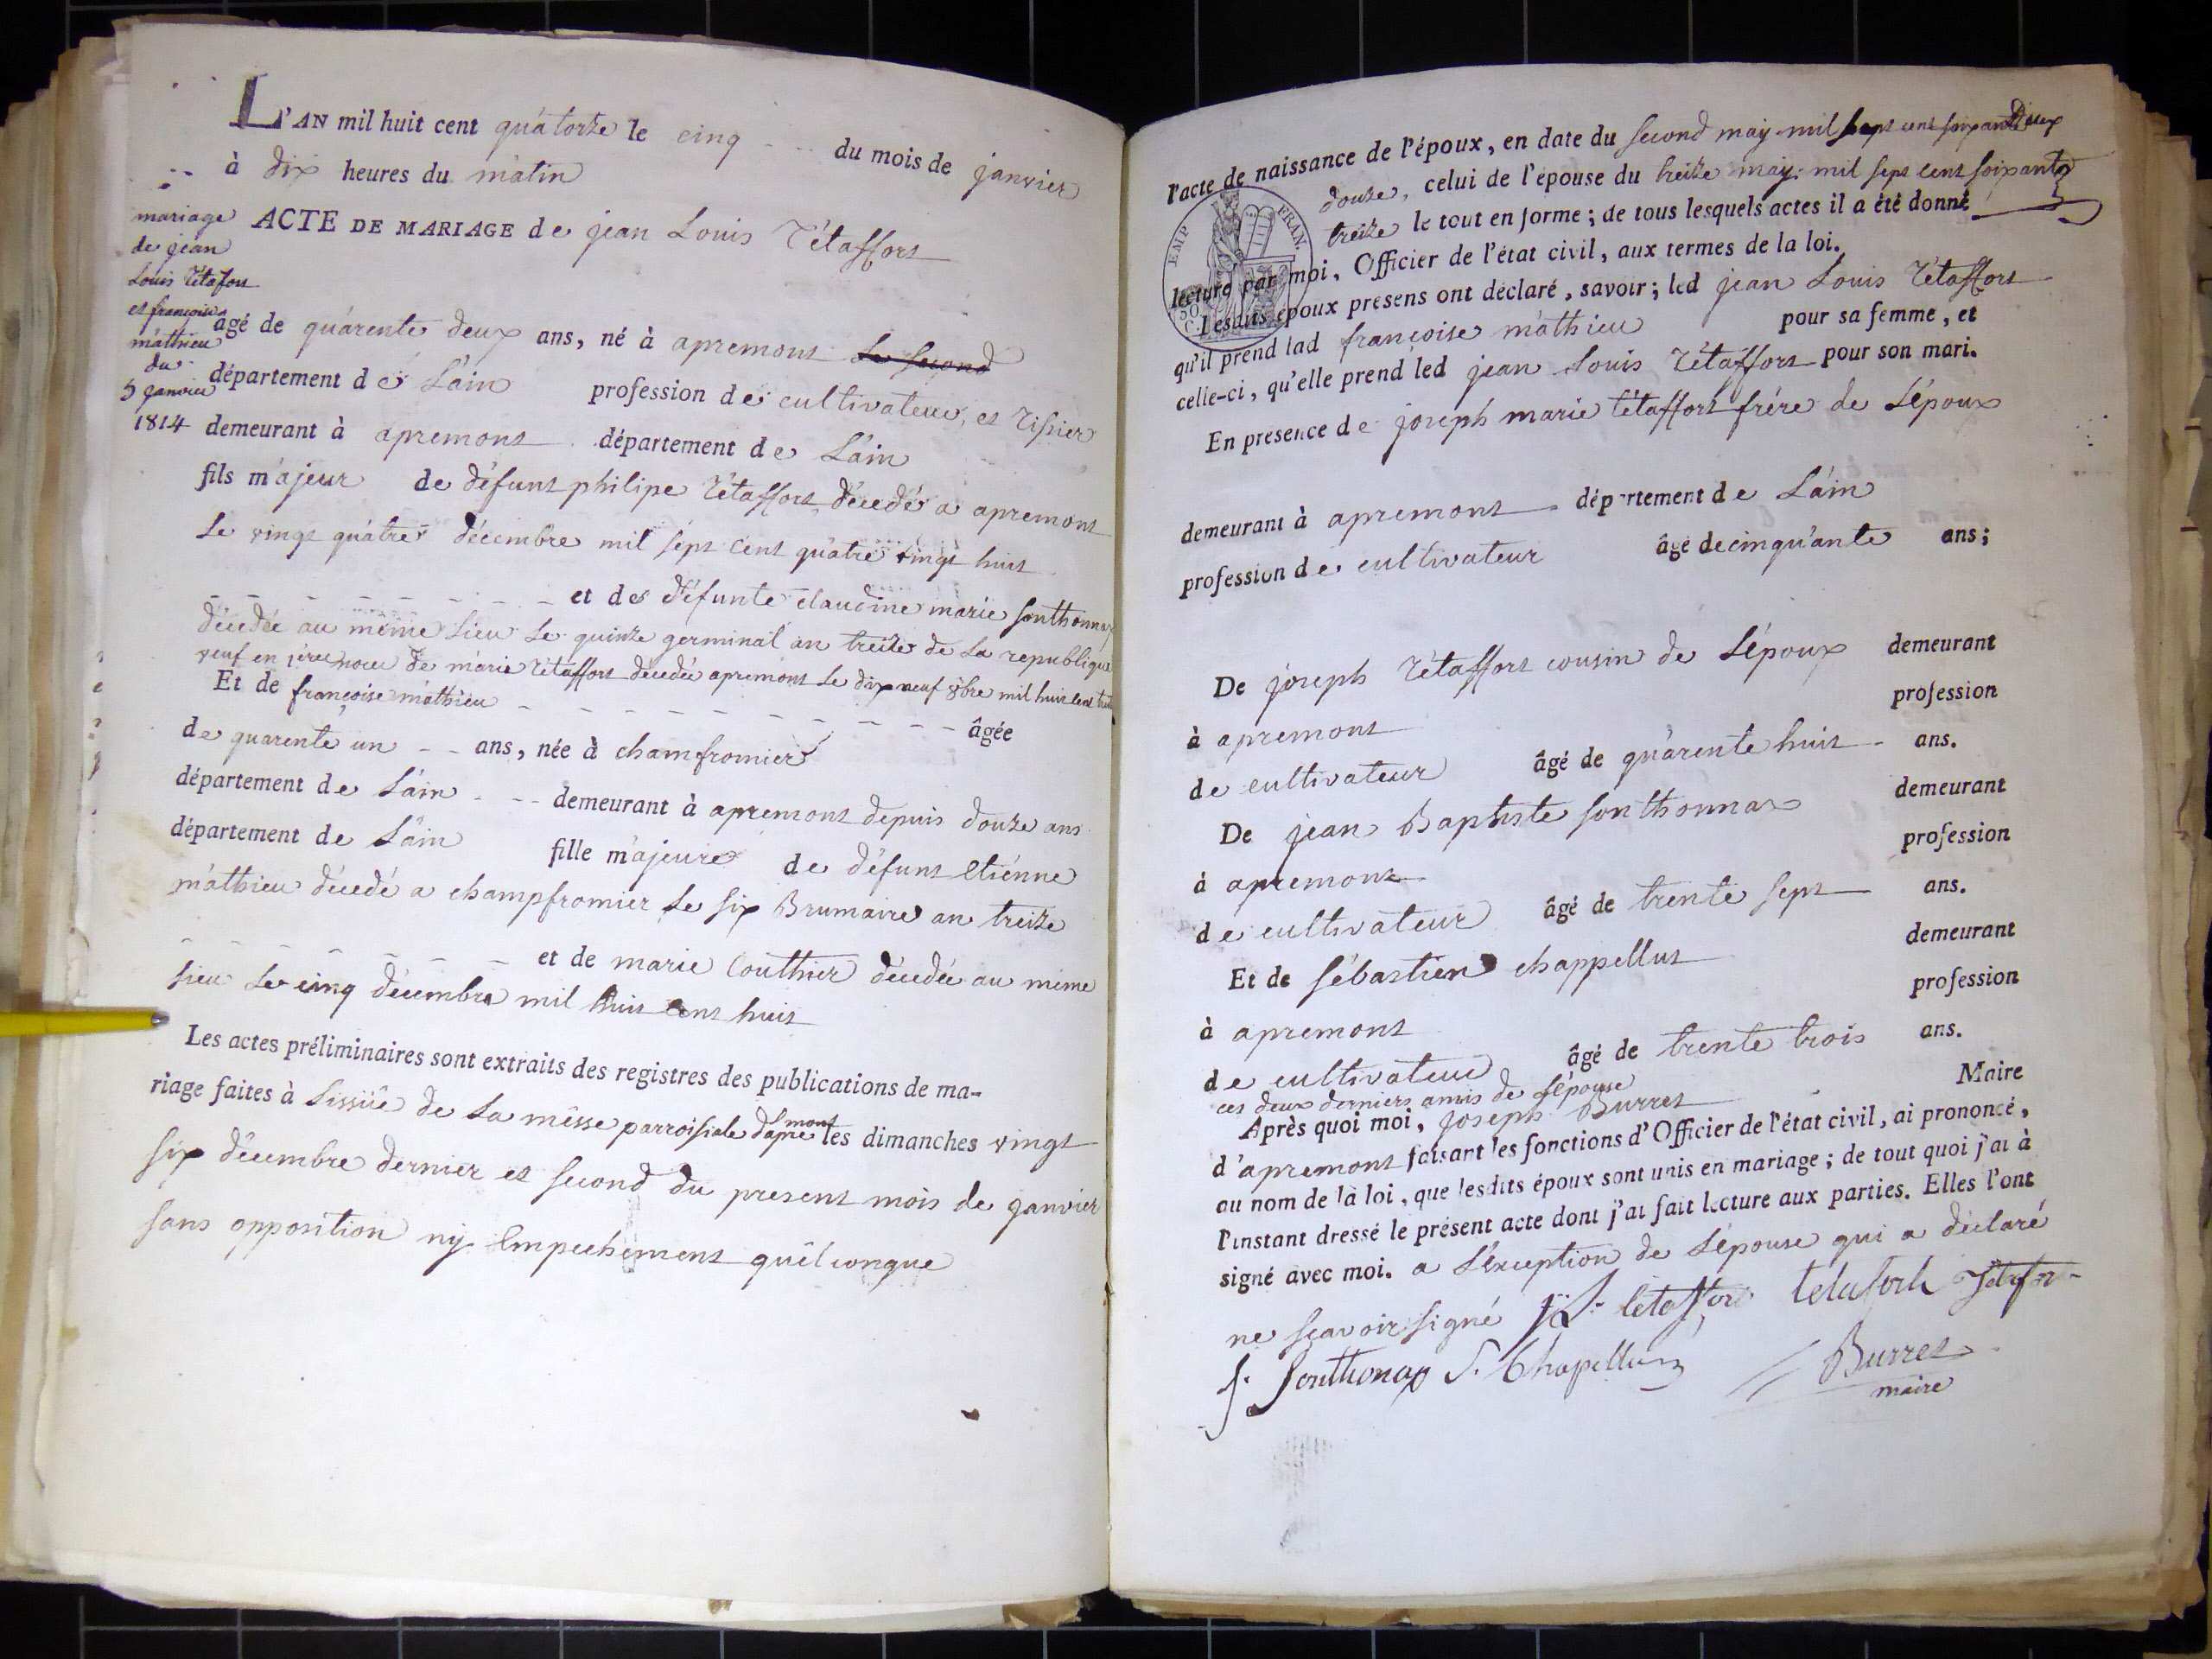 L'AN mil huit cent quátorze le cinq du mois de janvier
à dix heures du matin
mariage
de jean
Louis Tétafort
et françoise
mathieu
du
5 janvier
1814
ACTE DE MARIAGE de jean Louis Tétaffort
âgé de quárente deux ans, né à apremont Le second
département de L'ain profession de cultivateur, et Tissier
demeurant à apremont département de L'ain
fils májeur de défunt philipe Tétaffort, décedé a apremont
Le vingt quátre décembre mil sept cent quatre vingt huit
et de défunte claudine marie sonthonnax
décédée au même Lieu Le quinze germinal an treize de La republique
veuf en 1eres noces de marie Tétaffort decedée apremont Le dix neuf 8bre mil huit cent
Et de françoise mathieu âgée
de quarente un ans, née à chamfromier
département de L'ain demeurant à apremont depuis douze ans
département de L'ain fille májeure de défunt Etiénne
mathieu décedé a champfromier Le six Brumaire an treize
et de marie Couthier décédée au même
Lieu Le cinq décembre mil huit cent huit
Les actes préliminaires sont extraits des registres des publications de ma-
riage faites à L'issüe de La messe parroissiale d'apremont les dimanches vingt
six décembre dernier et second du present mois de janvier
sans opposition ny Empechement quélconque
l'acte de naissance de l'époux, en date du second may mil sept cent soixante
douze, celui de l'épouse du treize may mil sept cent soixante
treize le tout en forme; de tous lesquels actes il a été donné
EMP FRAN.
50 C.
lecture par moi, Officier de l'état civil, aux termes de la loi.
Lesdits époux présens ont déclaré, savoir; led jean Louis Tétaffort
qu'il prend lad françoise mathieu pour sa femme, et
celle-ci, qu'elle prend led jean Louis Tétaffort pour son mari.
En présence de joseph marie tétaffort frére de L'époux
demeurant à apremont département de L'ain
profession de cultivateur âgé de cinquánte ans;
De joseph Tétaffort cousin de L'époux demeurant
à apremont profession
de cultivateur âgé de quárente huit ans.
De jean Baptiste sonthonnax demeurant
à apremont profession
de cultivateur âgé de trente sept ans.
Et de Sébastien chappellut demeurant
à apremont profession
de cultivateur âgé de trente trois ans.
ces deux derniers amis de L'épouse
Après quoi moi, Joseph Burret Maire
d'apremont faisant les fonctions d'Officier de l'état civil, ai prononcé,
au nom de la loi, que lesdits époux sont unis en mariage; de tout quoi j'ai à
l'instant dressé le présent acte dont j'ai fait lecture aux parties. Elles l'ont
signé avec moi. a L'éxception de L'épouse qui a déclaré
ne sçavoir signé
J. Sonthonax S. Chapelluz Burret
maire